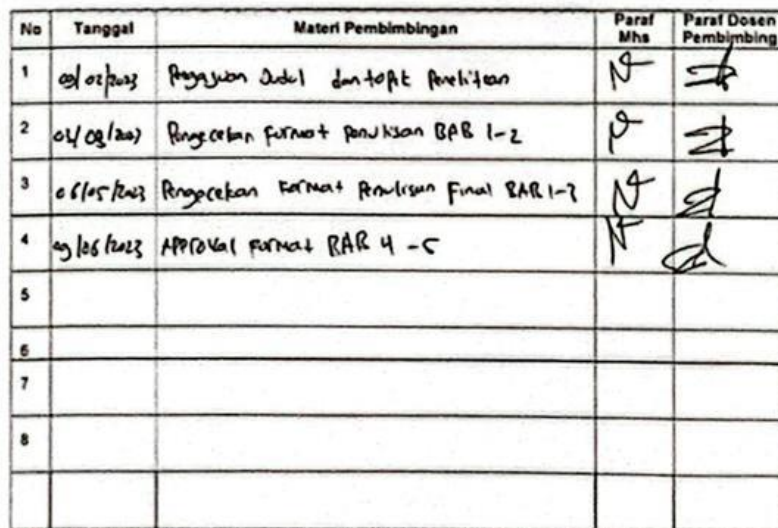 No Tanggal Materi Pembimbingan Paraf Mhs Paraf Dosen Pembimbing
1 09/02/2023 Pengajuan Judul dan topik Penelitian
2 Pengecekan format penulisan BAB 1-2
3 06/05/2023 Pengecekan Format Penulisan Final BAB 1-3
4 09/06/2023 APProval format BAB 4 -5
5
6
7
8